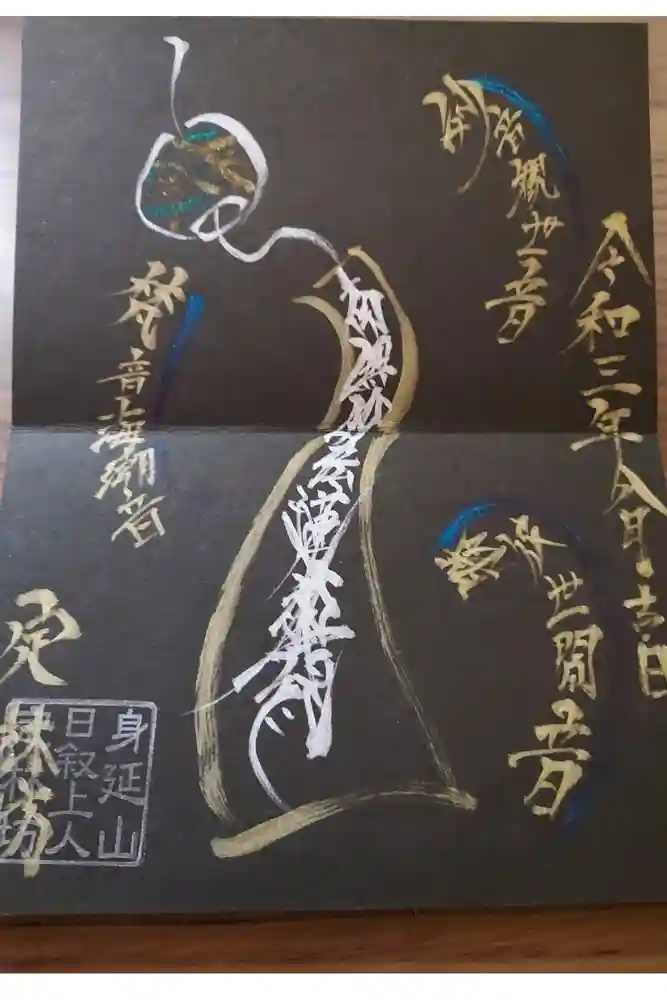 令和三年八月吉日
妙音観世音
勝彼世間音
南無妙法蓮華経
梵音海潮音
定林坊
身延山
日叙上人